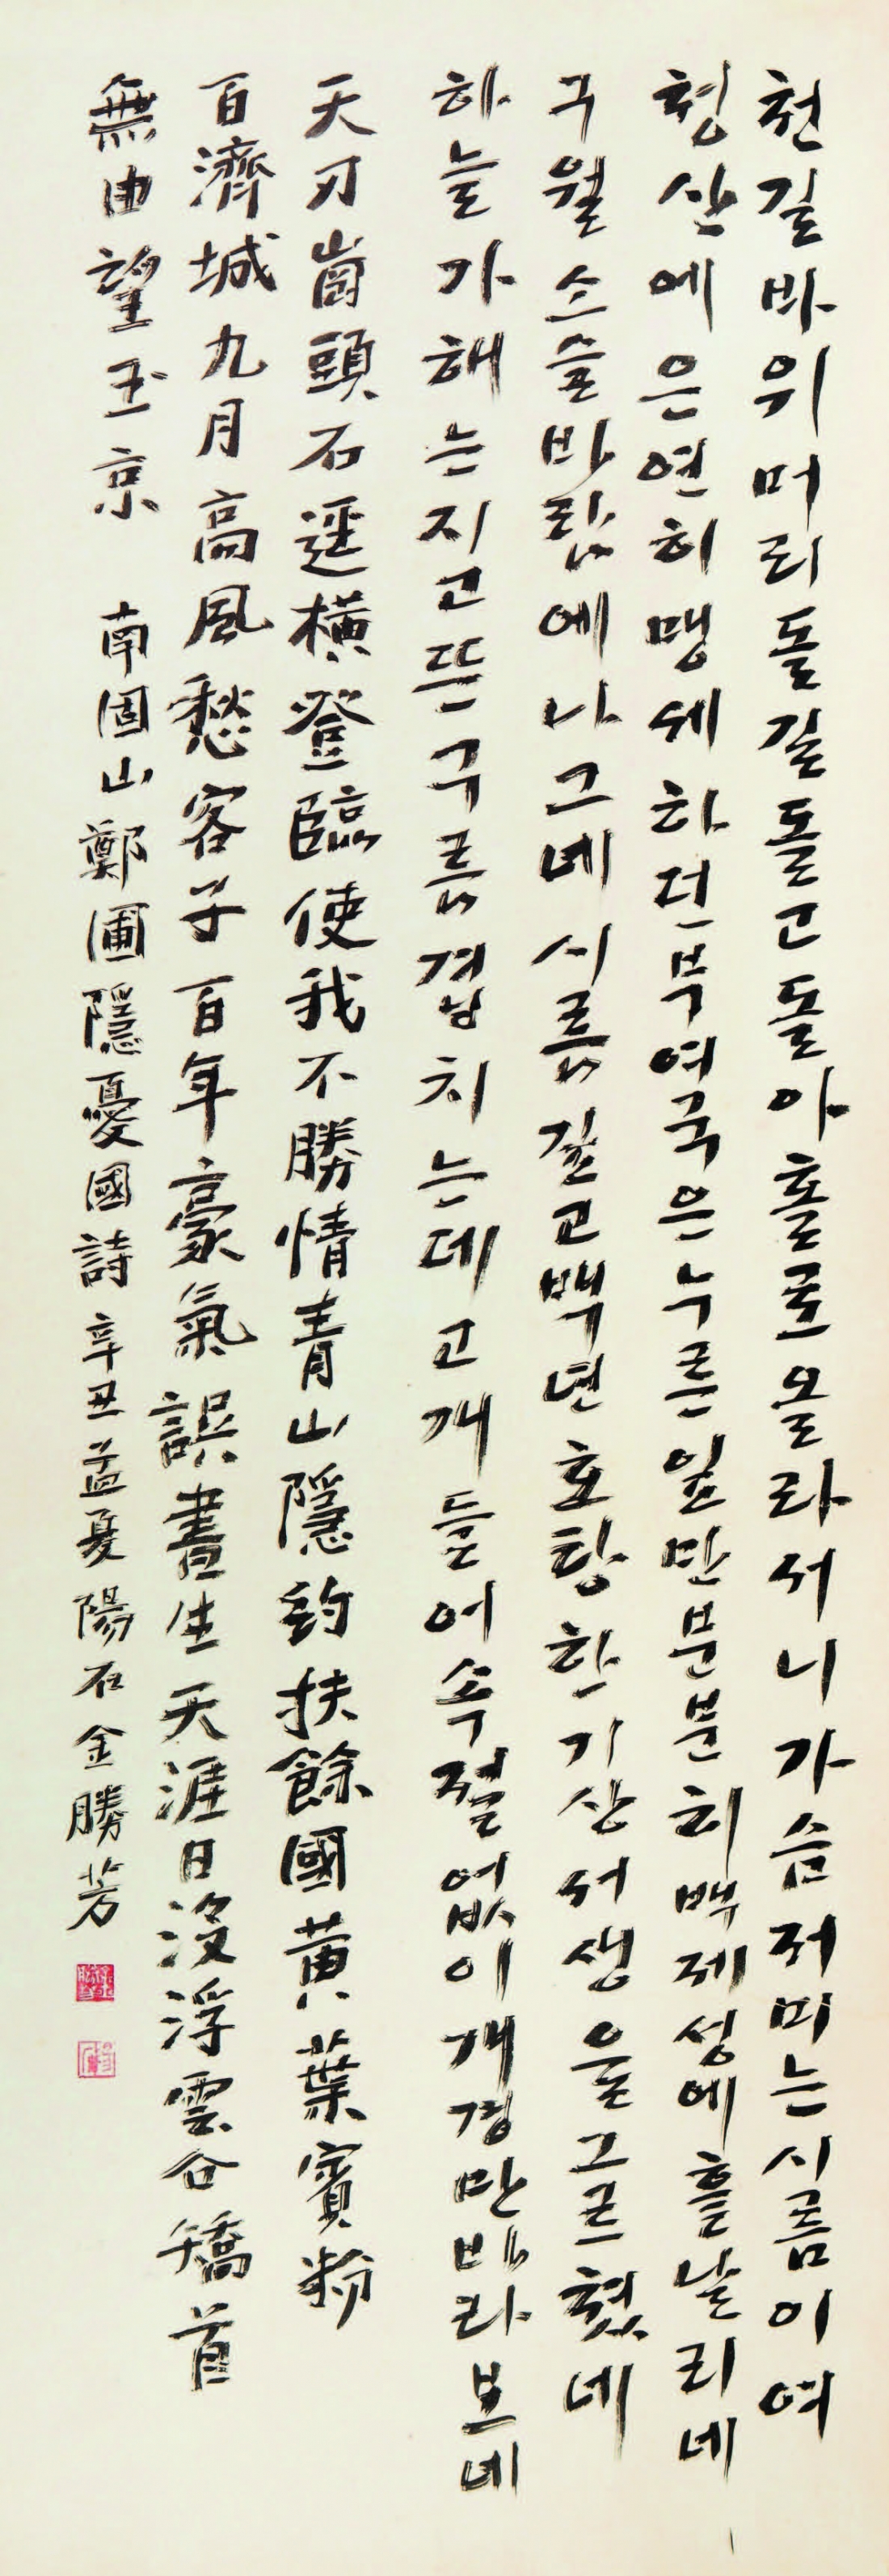 천길바위머리돌길돌고돌아홀로올라서니가슴저미는시름이여
청산에은연히맹세하던부여국은누른잎만분분히백제성에흩날리네
구월소슬바람에나그네시름깊고백년호탕한기산서생을그르쳤네
하늘가해는지고뜬구름겹치는데고개들어속절없이개경만바라보네
天刃崗頭石逕橫登臨使我不勝情青山隱約扶餘國黃葉賓粉
百濟城九月高風愁客子百年豪氣誤書生天涯日沒浮雲合矯首
無由望玉京 南固山鄭圃隱憂國詩 辛丑孟夏陽石金勝芳